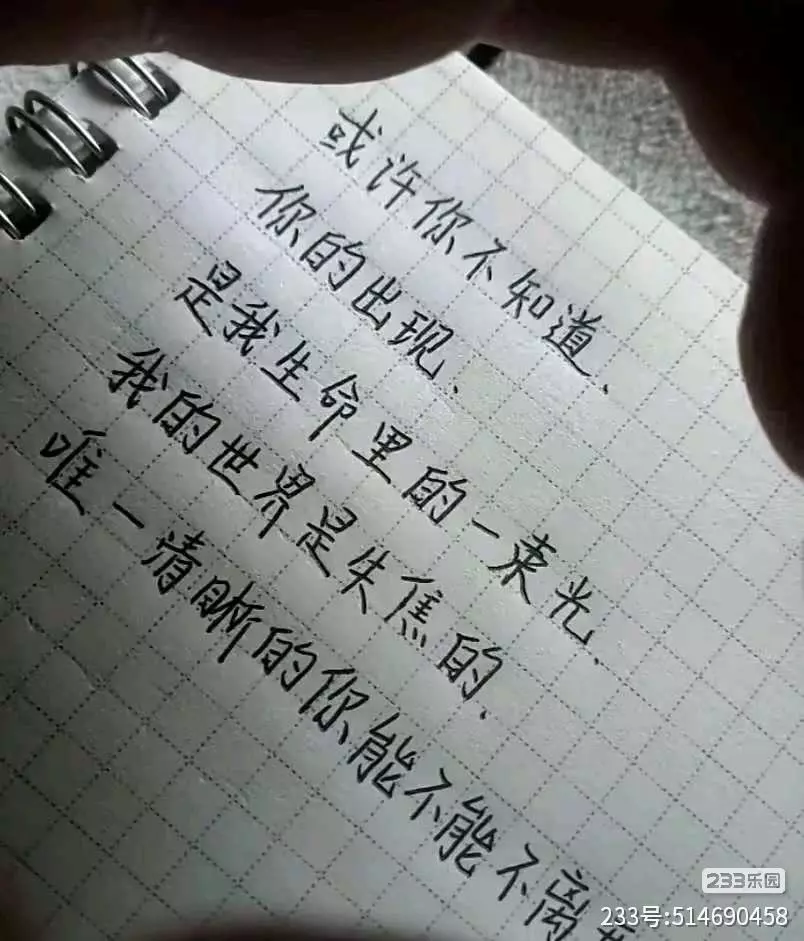 或许你不知道、
你的出现、
是我生命里的一束光、
我的世界是失焦的、
唯一清晰的你能不能不离
233乐园
233号:514690458